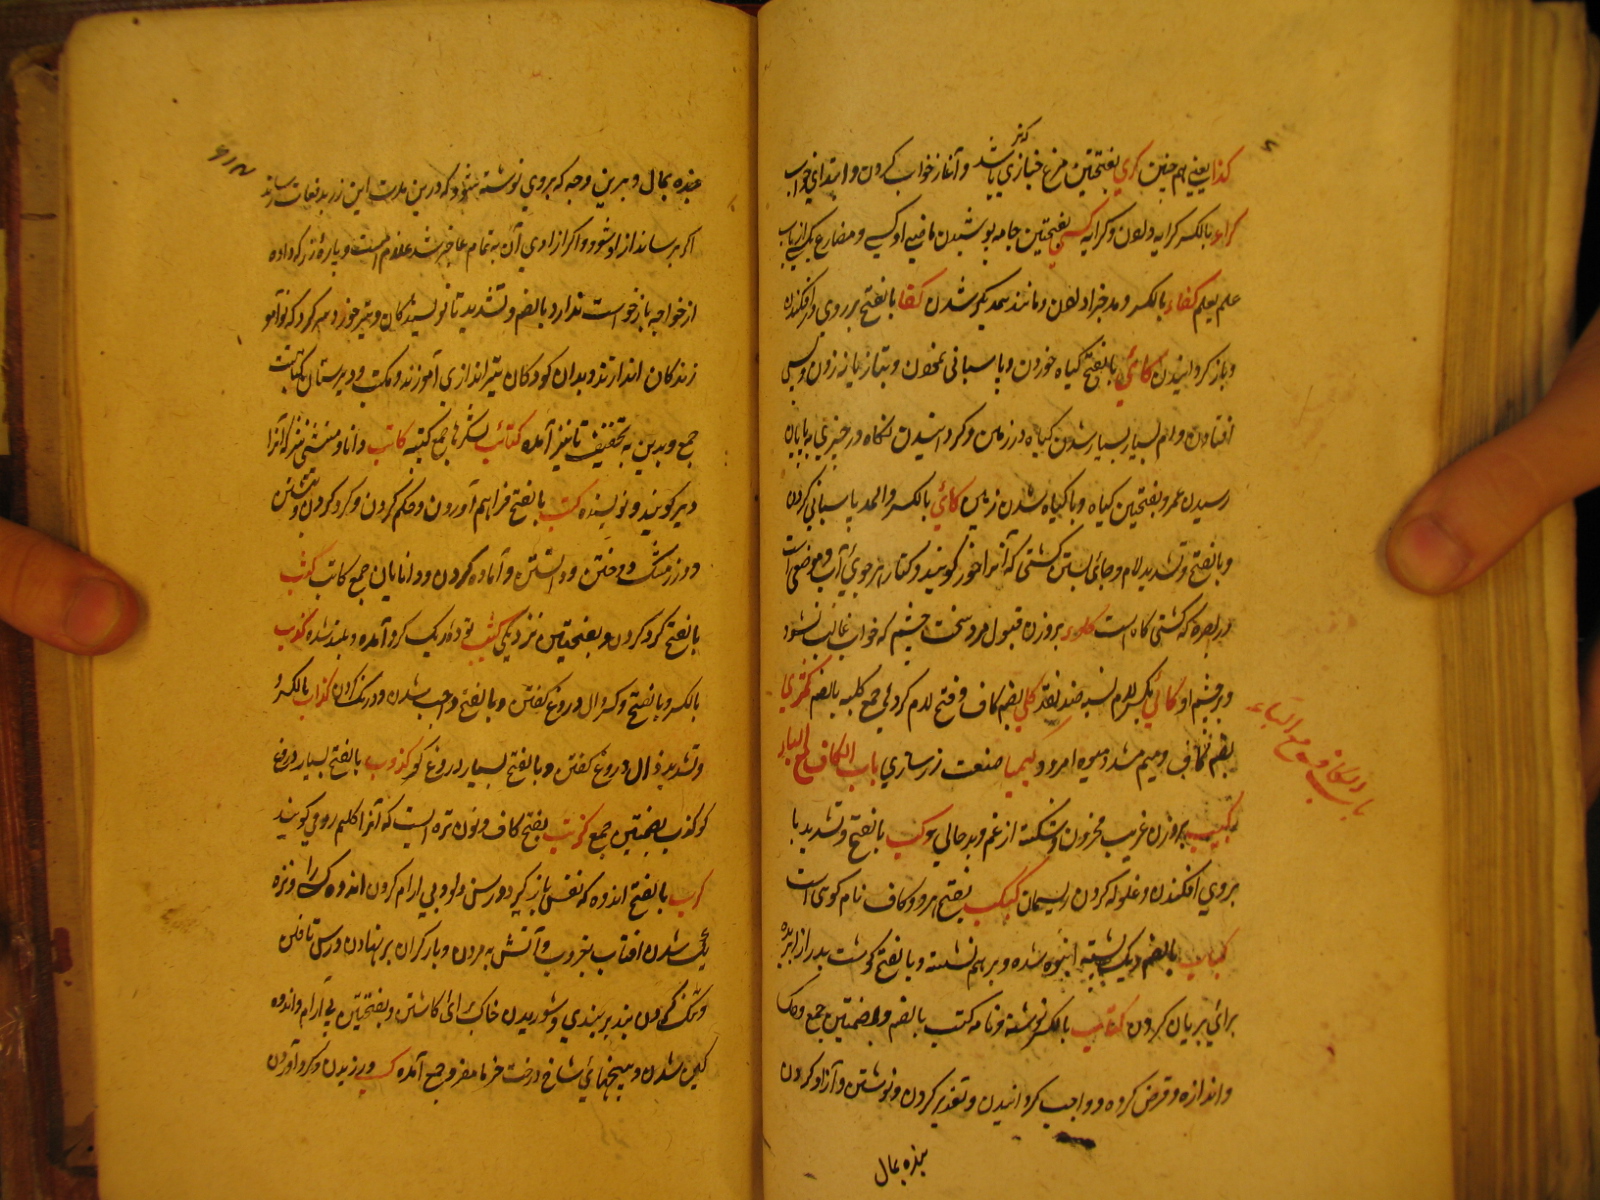 کذا یعنی هم چنین کری بفتحتین مرغ خبازی باشد و آغاز خواب کردن و ابتدای خواب
کراء بالکسر کرایه دادن و کرایه کسی بفتحتین جامه پوشیدن ماضی او کسی و مضارع یکسی از باب
علم یعلم کفاء بالکسر و مد جزا دادن و مانند همدیگر شدن کفا بالفتح بر روی در افکندن
و باز گردانیدن کلائی بالفتح گیاه خوردن و پاسبانی نمودن و بتازیانه زدن و پس
افتادن و وام بسیار بسیار شدن گیاه در زمین و گردانیدن نگاه در چیزی به پایان
رسیدن عمر و بفتحتین گیاه و با گیاه شدن زمین کلائی بالکسر و المد پاسبانی کردن
و بالفتح و تشدید لام و جائی بستن کشتی که آنرا خور گویند و کنار هر جوی آب و موضعی است
در بصره که کشتی گاه است کلوء بر وزن قبول مرد سخت چشم که خواب غالب نشود
در چشم او کالئی بکسر لام نسیه ضد نقد کلی بضم کاف و فتح لام گرده جمع کلیه بالضم کمثری
بضم کاف و میم مشدد میوه امرود کیمیا صنعت زر سازی باب الکاف مع الباء
باب الکاف مع الباء
کئیب بر وزن غریب محزون و شکسته از غم و بد حالی کب بالفتح و تشدید با
بر وی افکندن و غلوله کردن ریسمان کبکب بفتح هر دو کاف نام کوهی است
کباب بالضم ریک پشته انبوه شده و بر هم نشسته و بالفتح گوشت بدرازا بریده
برای بریان کردن کتاب بالکسر نوشته و نامه کتب بالضم و بضمتین جمع و حکم
و اندازه و فرض کرده و واجب گردانیدن و تقدیر کردن و نوشتن و آزاد کردن
بنده بمال
بنده بمال و برین وجه که بر وی نوشته میشود که درین مدت این زر بدفعات رساند
اگر برساند آزاد شود و اگر از ادای آن به تمام عاجز شد غلام است و پاره زر که داده
از خواجه باز خواست ندارد بالضم و تشدید تا نویسندگان و تیر خورد سر گرد که نوآمو
زندگان اندازند و بدان کودکان تیر اندازی آموزند و مکتب و دبیرستان کتاتیب
جمع و بدین به تخفیف تا نیز آمده کتائب لشکرها جمع کتیبه کاتب دانا و منشی نیز که آنرا
دبیر گویند و نویسنده کتب بالفتح فراهم آوردن و محکم کردن و گرد کردن و نبشتن
و درز مشک دوختن و دانستن و آماده کردن و دانایان جمع کاتب کثب
بالفتح گرد کردن و بفتحتین نزدیکی کثیب توده ریک گرد آمده و بلند شده کذب
بالکسر و بالفتح و کسر ذال دروغ گفتن و بالفتح واجب شدن و درنگ کردن کذاب بالکسر و
و تشدید ذال دروغ گفتن و بالفتح بسیار دروغ گو کذوب بالفتح بسیار دروغ
گو کذب بضمتین جمع کرنب بفتح کاف و نون تره ایست که آنرا کلم رومی گویند
کرب بالفتح اندوه که نفس باز گیرد و رسن دلو و بی آرام کردن اندوه کسی را و نزد
یک شدن آفتاب بغروب و آتش به مردن و بار گران بر نهادن و رس تافتن
و تنک کردن بند بر بندی و شوریدن خاک برای کاشتن و بفتحتین بی آرام و اندوه
گین شدن و بیخهای شاخ درخت خرما مفرد و جمع آمده کسب ورزیدن و گرد آوردن